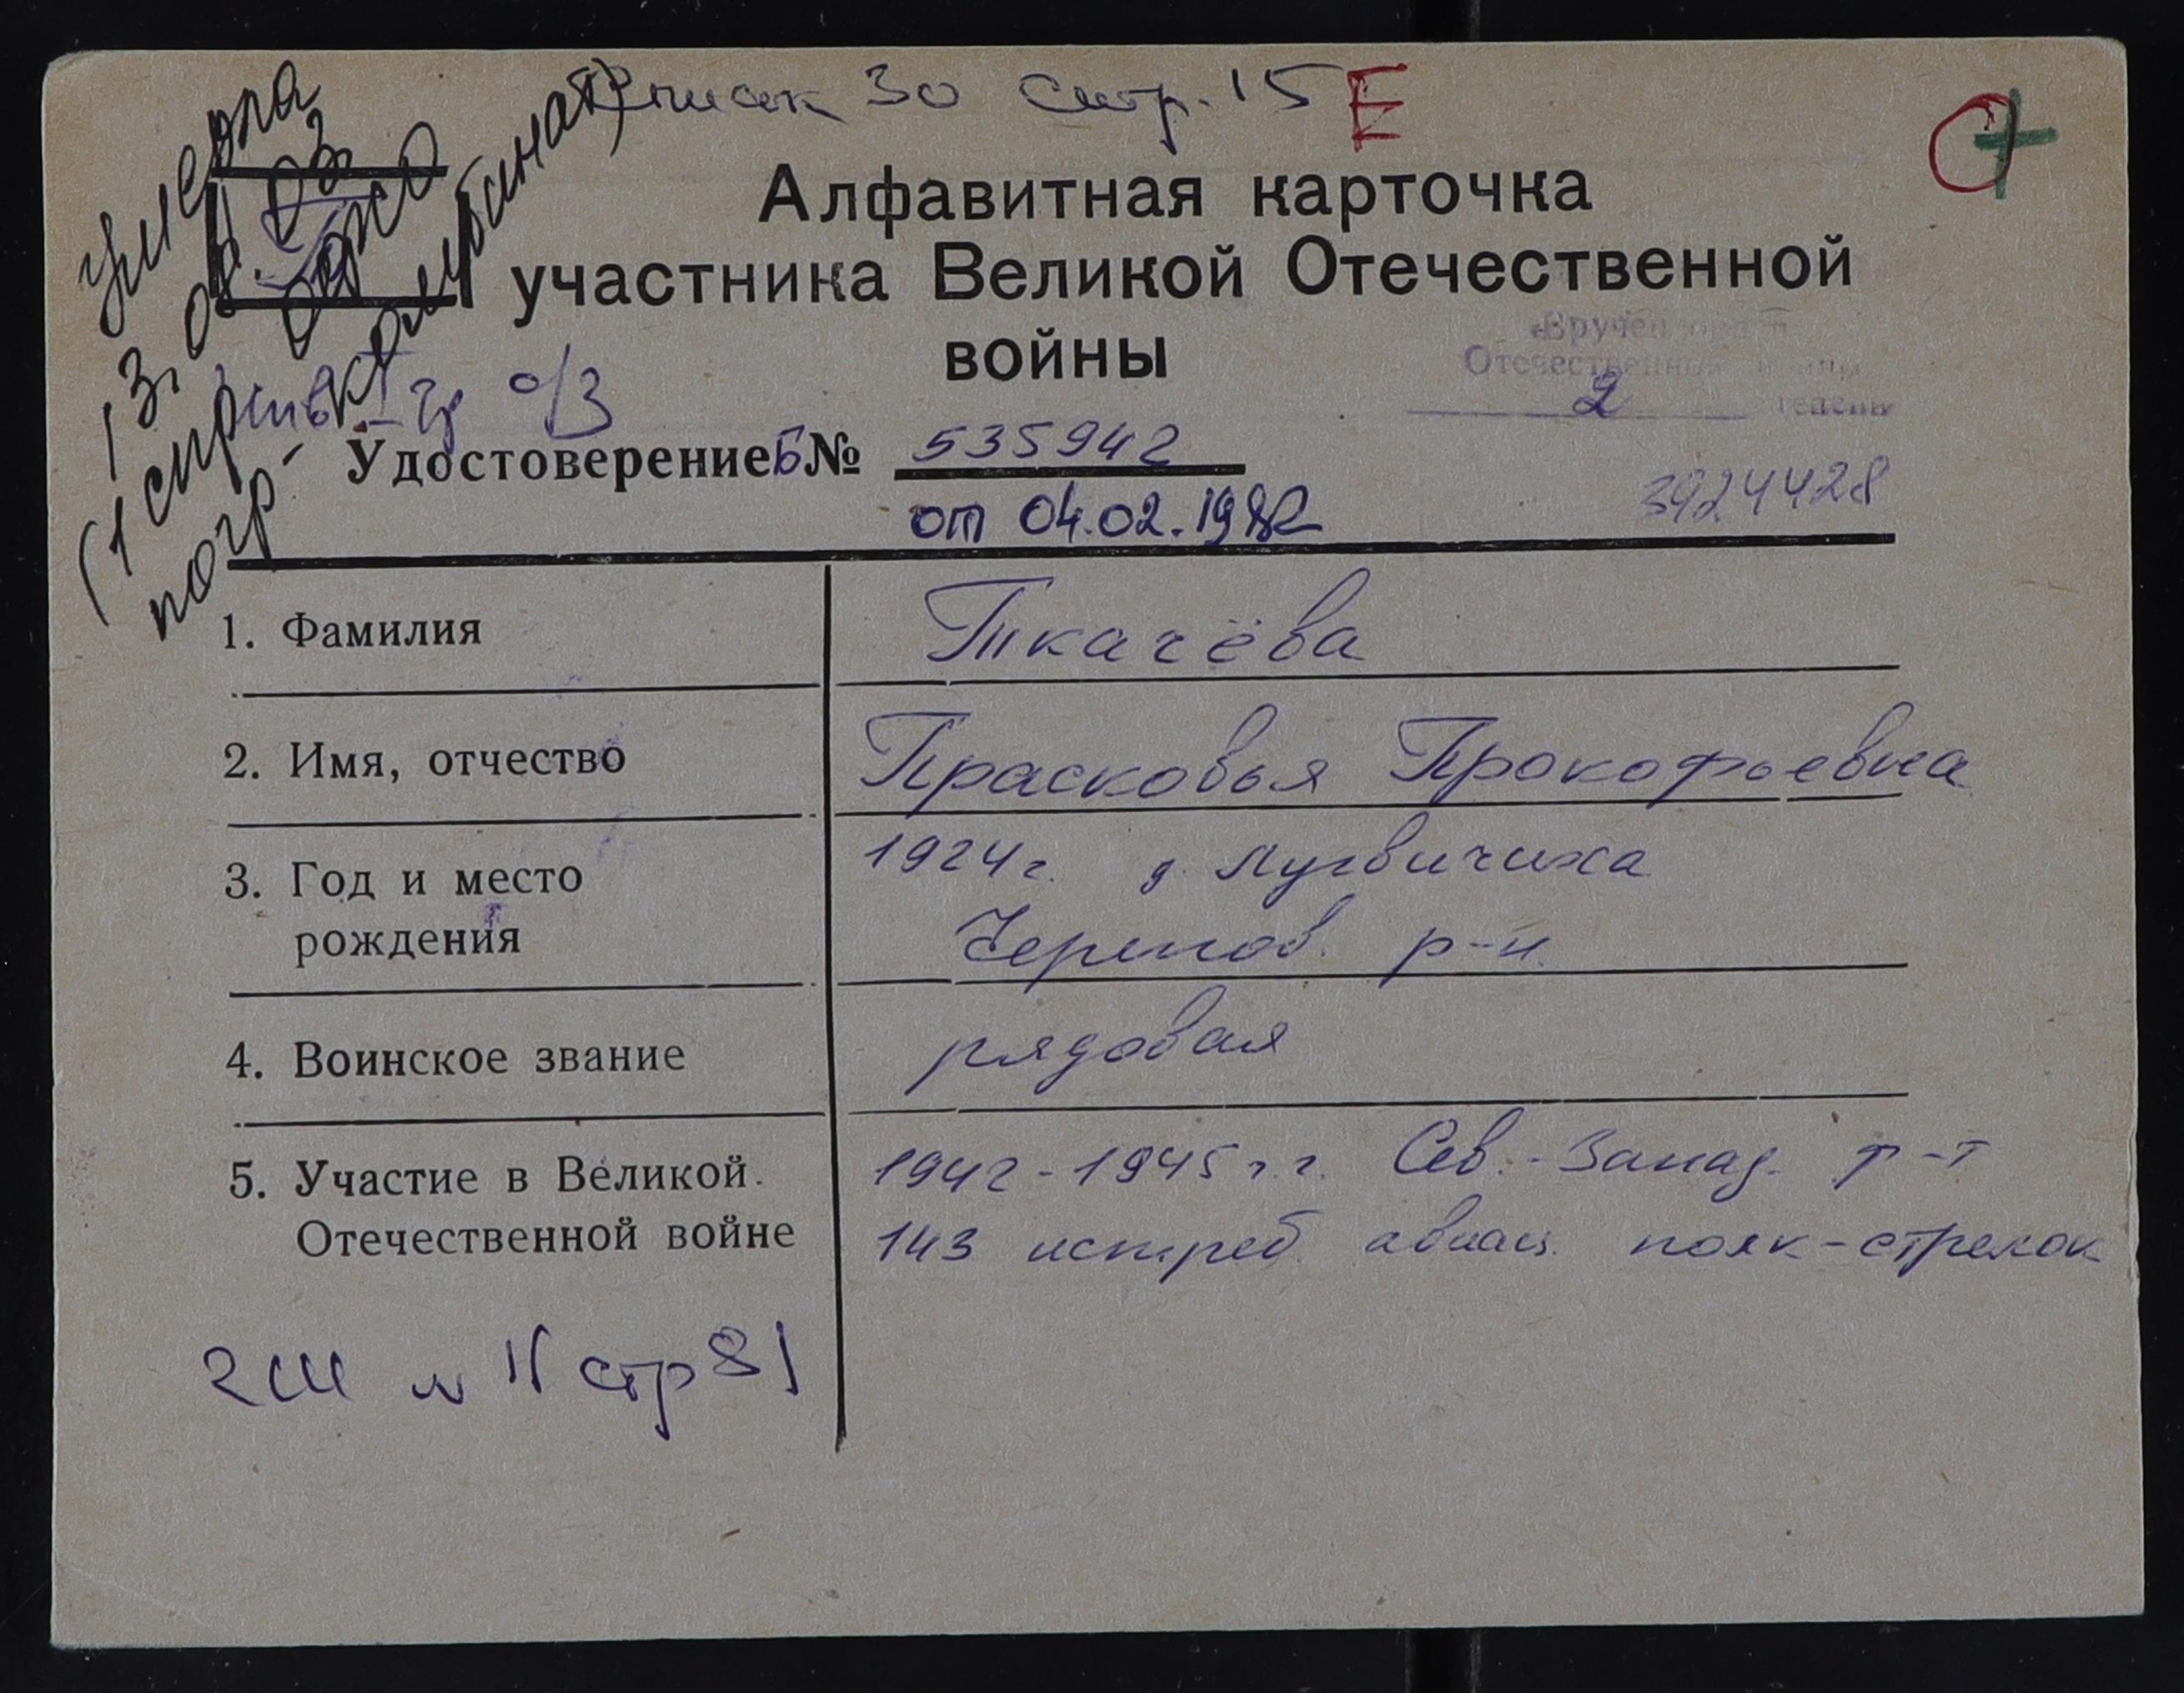 Список 30 стр. 15 Е
умерла
13.08.03
(1 спр
погр- комбинат)
Алфавитная карточка
участника Великой Отечественной
войны
Вручен орден
Отечественной войны
2 степени
инв. II гр о/з
Удостоверение Б № 535942
от 04.02.1982
3924428
1. Фамилия Ткачёва
2. Имя, отчество Прасковья Прокофьевна
3. Год и место 1924г. д. Лугвичиха
рождения Черепов. р-н
4. Воинское звание рядовая
5. Участие в Великой 1942-1945г.г. Сев.-Запад. ф-т
Отечественной войне 143 истреб. авиац. полк-стрелок
стр 81